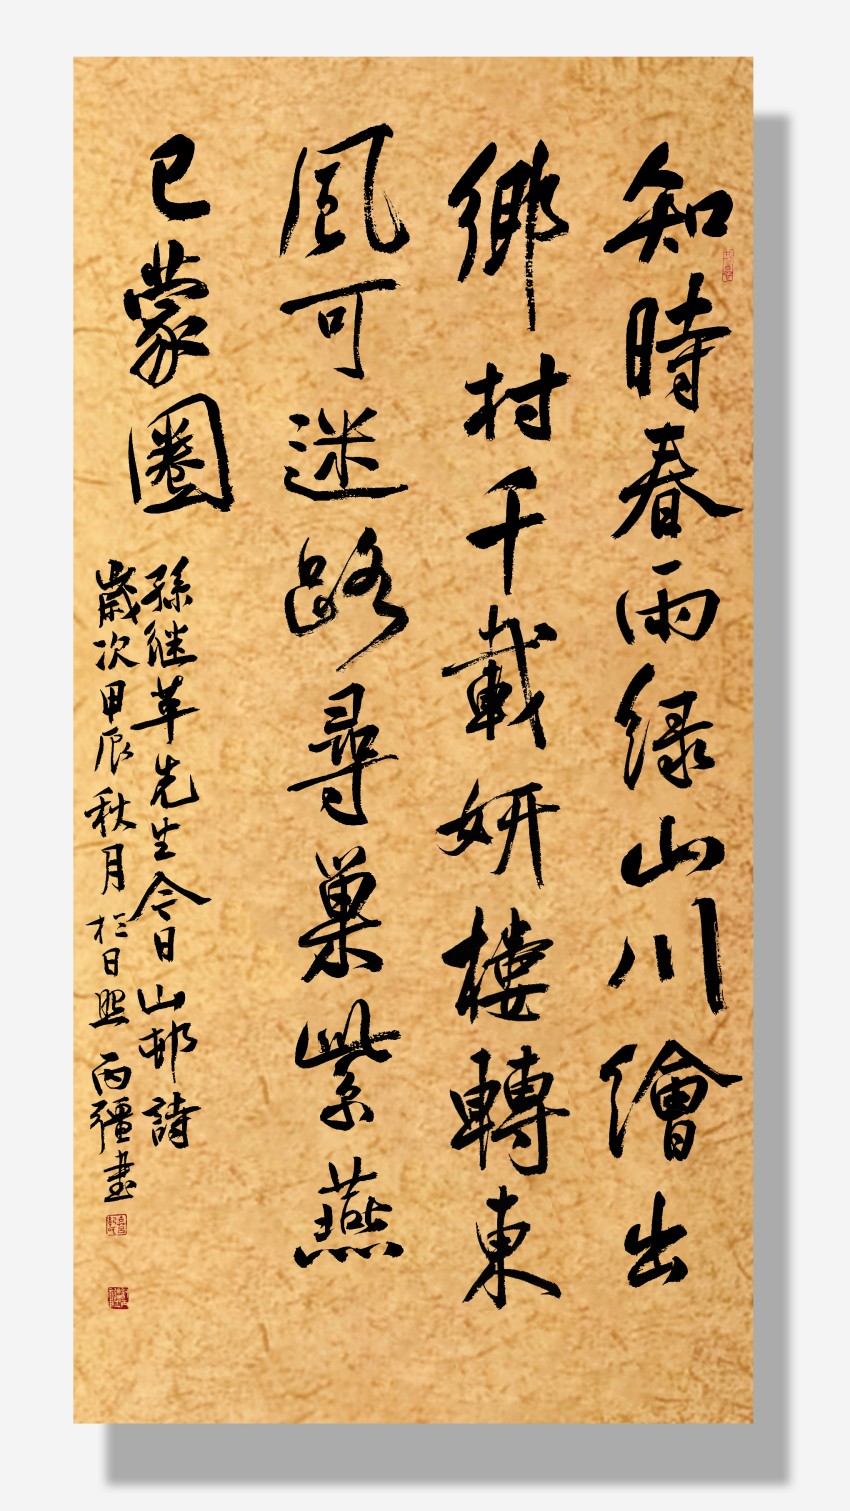 知時春雨绿山川繪出
鄉村千載妍樓轉東
風可迷路尋巢紫燕
已蒙圈
孫继革先生今日山邨詩
歲次甲辰秋月於日照丙彊書